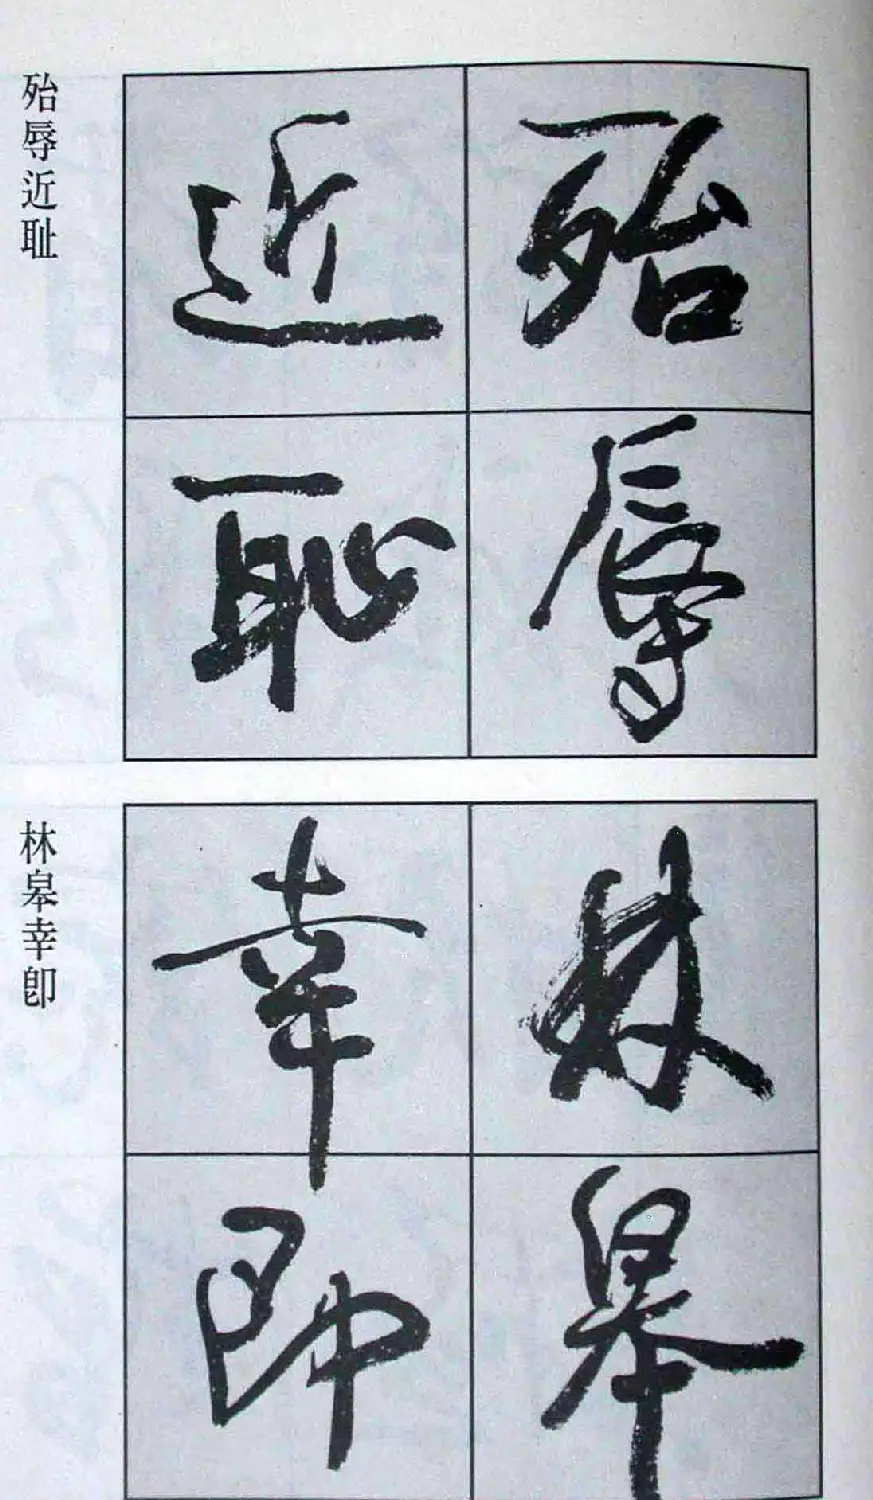 殆辱近耻
殆辱
近恥
林皋幸卽
林皋
幸即